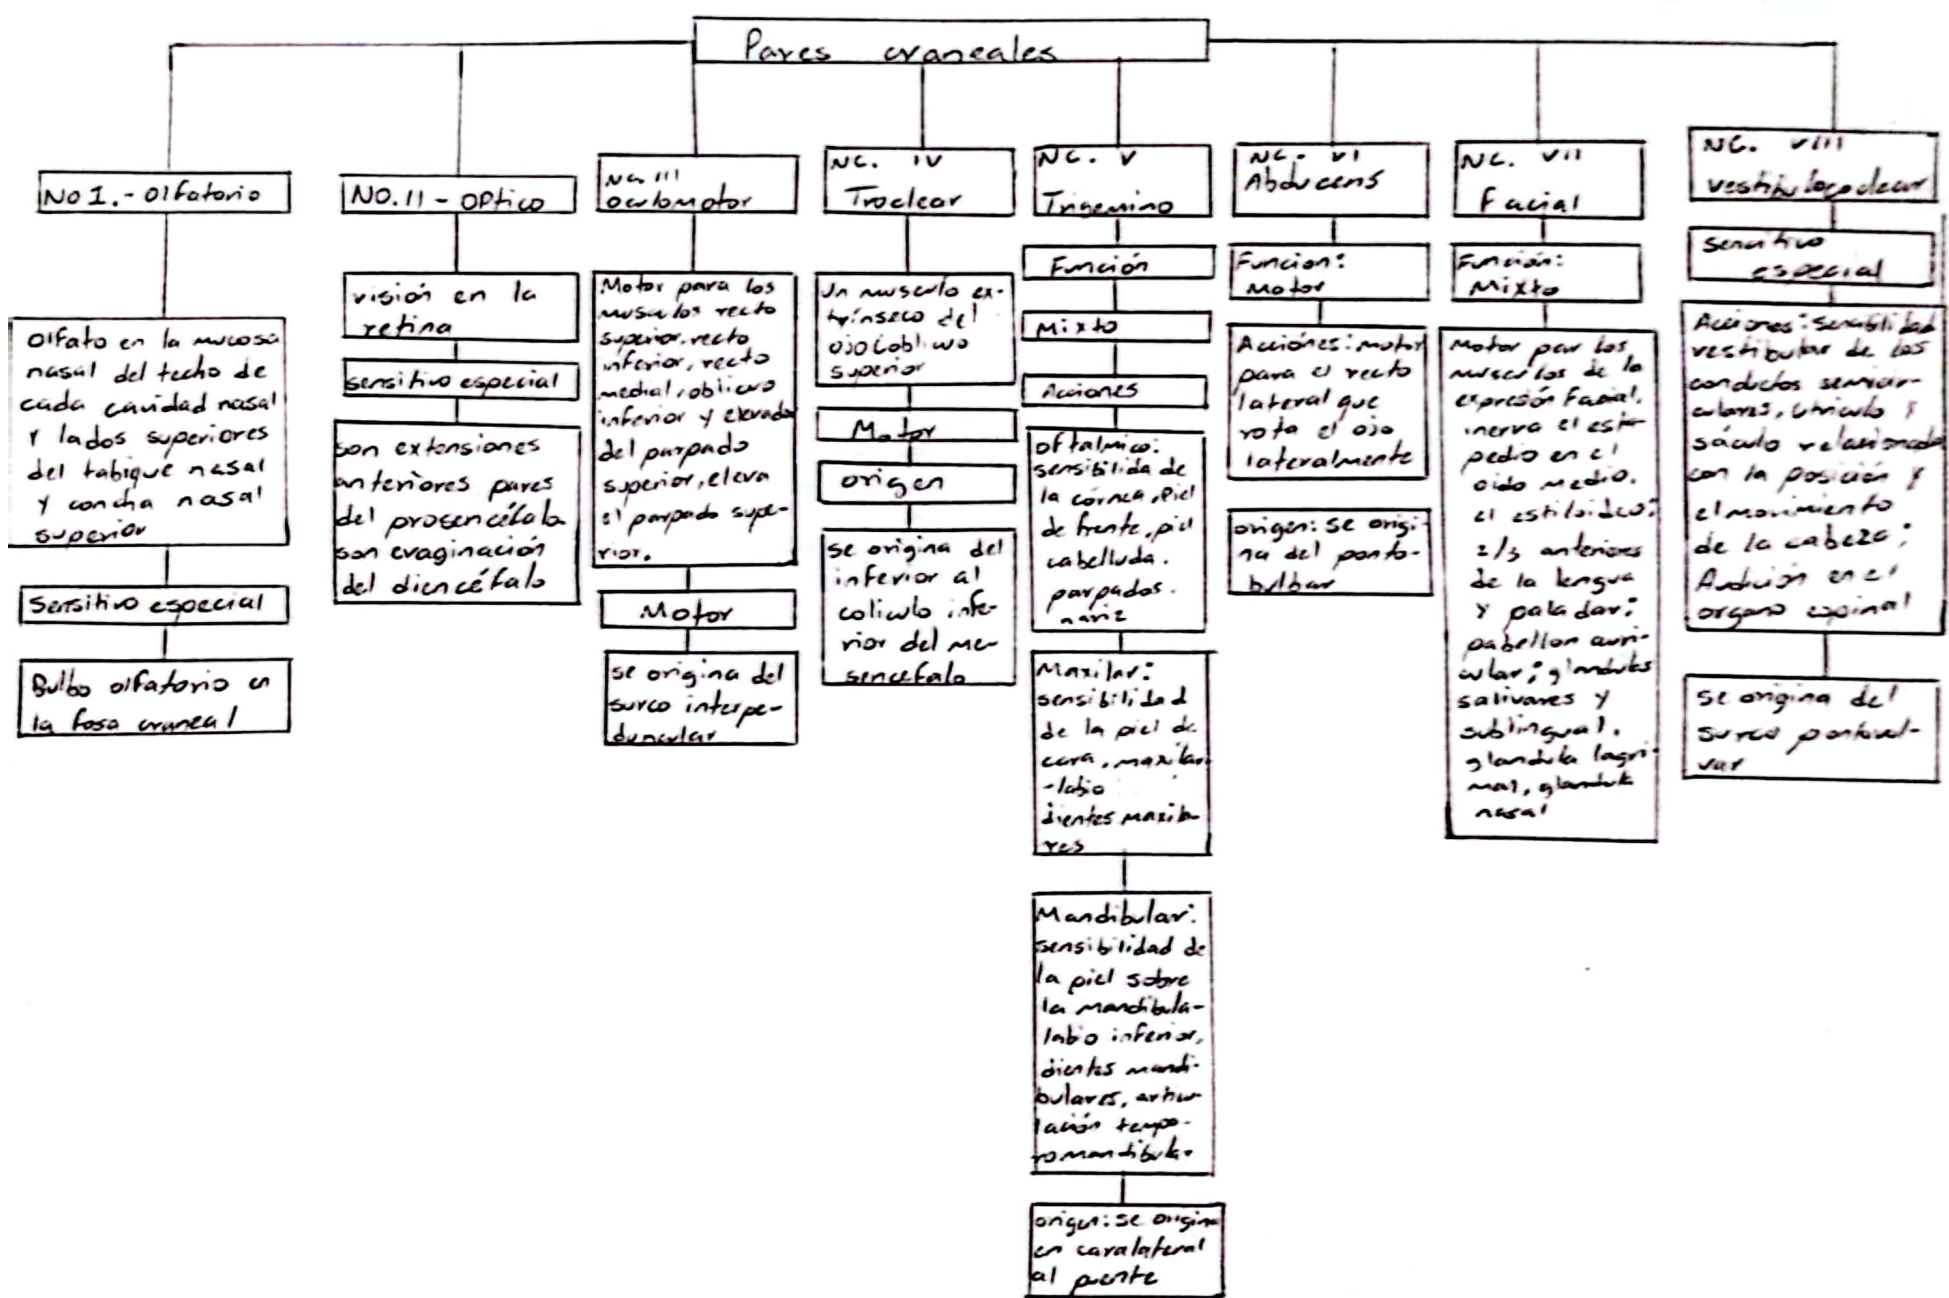 Pares craneales
No I.- Olfatorio
Olfato en la mucosa
nasal del techo de
cada cavidad nasal
y lados superiores
del tabique nasal
y concha nasal
superior
Sensitivo especial
Bulbo olfatorio en
la fosa craneal
NO. II - Optico
visión en la
retina
sensitivo especial
son extensiones
anteriores pares
del prosencéfalo
son evaginación
del diencéfalo
NC. III
oculomotor
Motor para los
musculos recto
superior, recto
inferior, recto
medial, oblicuo
inferior y elevador
del parpado
superior, eleva
el parpado supe-
rior.
Motor
se origina del
surco interpe-
duncular
NC. IV
Troclear
Un musculo ex-
trínseco del
ojo (oblicuo
superior
Motor
origen
se origina del
inferior al
coliculo infe-
rior del me-
sencefalo
NC. V
Trigemino
Función
Mixto
Acciones
oftalmico:
sensibilida de
la córnea, piel
de frente, piel
cabelluda.
parpados.
nariz
Maxilar:
sensibilidad
de la piel de
cara, maxilar
-labio
dientes maxila-
res
Mandibular:
sensibilidad de
la piel sobre
la mandibula-
labio inferior,
dientes mandi-
bulares, articu-
lación tempo-
romandibular
origen: se origina
en caralateral
al puente
NC. VI
Abducens
Funcion:
Motor
Acciónes: motor
para el recto
lateral que
rota el ojo
lateralmente
origen: se origi-
na del ponto-
bulbar
NC. VII
Facial
Función:
Mixto
Motor par los
musculos de la
expresión facial,
inerva el esta-
pedio en el
oido medio.
el estiloideo;
2/3 anteriores
de la lengua
y paladar;
pabellon auri-
cular; glandulas
salivares y
sublingual,
glandula lagri-
mal, glandula
nasal
NC. VIII
vestibulococlear
Sensitivo
especial
Acciones: sensibilidad
vestibular de los
conductos semicir-
culares, utriculo y
sáculo relacionado
con la posición y
el movimiento
de la cabeza;
Audición en el
organo espinal
se origina del
surco pontovul-
var